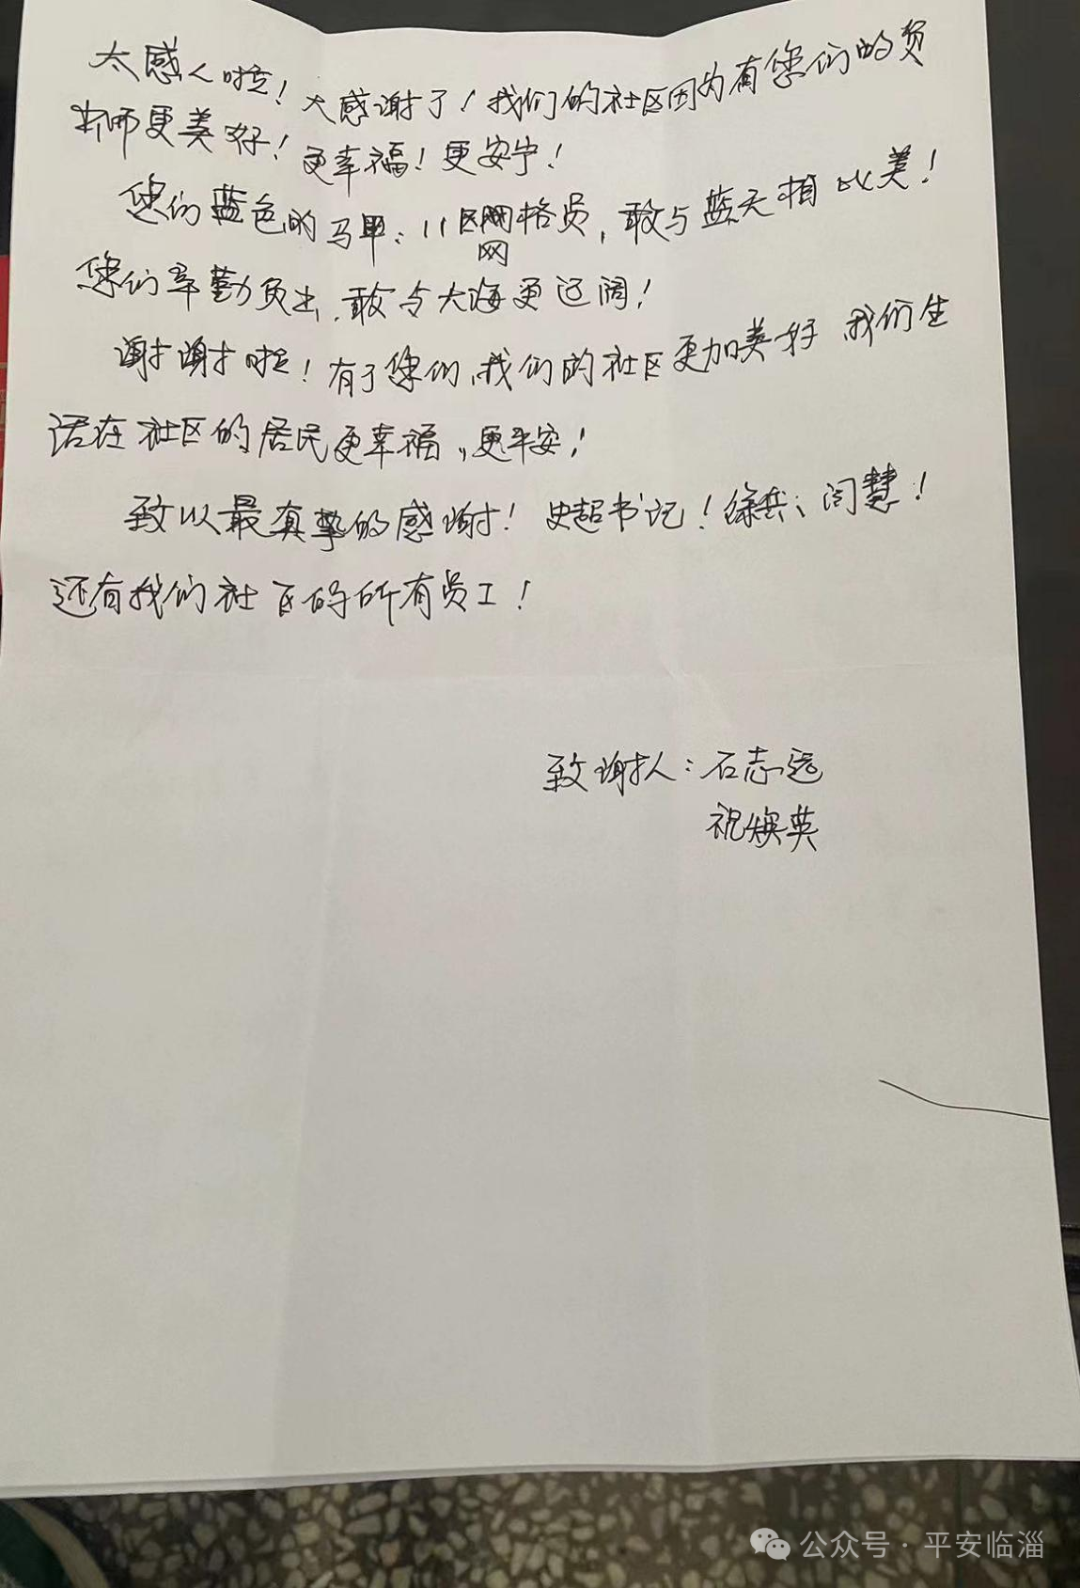 太感人啦！太感谢了！我们的社区因为有您们的负
出而更美好！更幸福！更安宁！
您们蓝色的马甲：11区网格员，敢与蓝天相比美！
网
您们辛勤负出，敢与大海更辽阔！
谢谢啦！有了您们，我们的社区更加美好 我们生
活在社区的居民更幸福，更平安！
致以最真挚的感谢！史超书记！徐兵、闫慧！
还有我们社区的所有员工！
致谢人：石志远
祝焕英
公众号·平安临淄